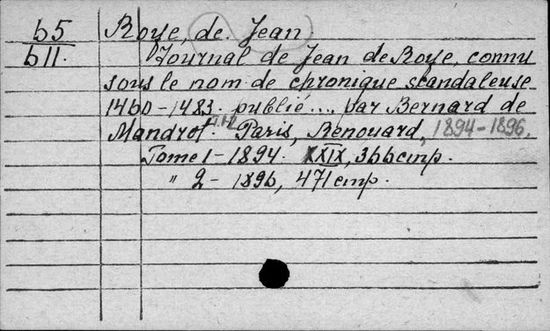 65 Roye, de Jean
611. Journal de Jean de Roye, connu
sous le nom de chronique skandaleuse
1460-1483. publié... par Bernard de
Mandrot. Paris, Renouard, 1894-1896.
Tome 1-1894. XXIX, 366 cmp.
" 2-1896, 471 cmp.